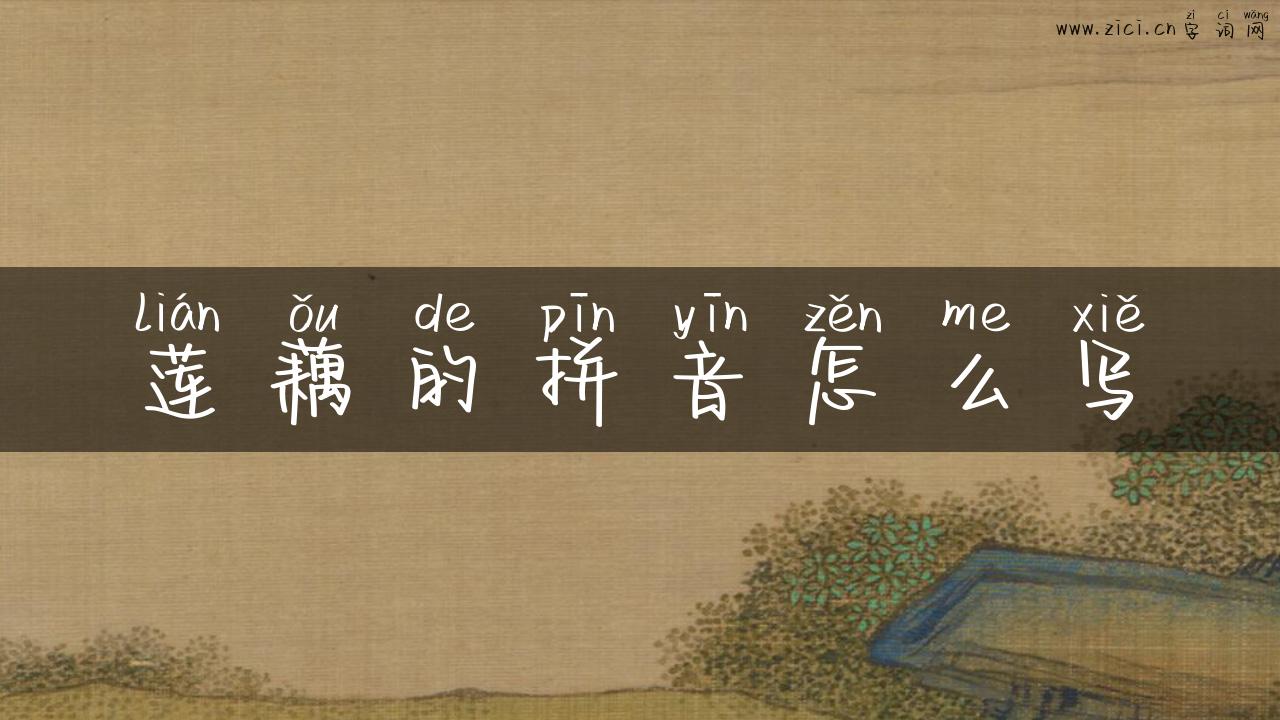 zì cí wǎng
www.zici.cn 字 词 网
lián ǒu de pīn yīn zěn me xiě
莲 藕 的 拼 音 怎 么 写